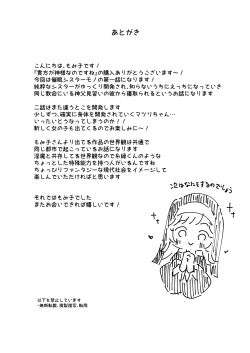 あとがき
こんにちは、もみ子です！
『貴方が神様なのですね』の購入ありがとうございます～！
今回は催眠シスターモノの第一話になります！
純粋なシスターがゆっくり開発され、知らないうちにえっちになっていき
同じ教会にいる神父見習いの彼から催取られるというお話になります
二話はまた違うとこを開発します
少しずつ、確実に身体を開発されていくマツリちゃん…
いったいどうなってしまうのか！！
新しく女の子も出てくるのでお楽しみに～！
もみ子さんより出てる作品の世界観は共通で
同じ都市で起こっているお話になります
淫魔と共存してる世界観なので糸緒くんのような
ちょっとした特殊能力を持つ人がいるんです
ちょっぴりファンタジーな現代社会をイメージして
楽しんでいただければと思います
それではもみ子でした
またお会いできれば嬉しいです！
次はなにをするのでしょう
以下を禁止しています
・無断転載、複製複写、転用